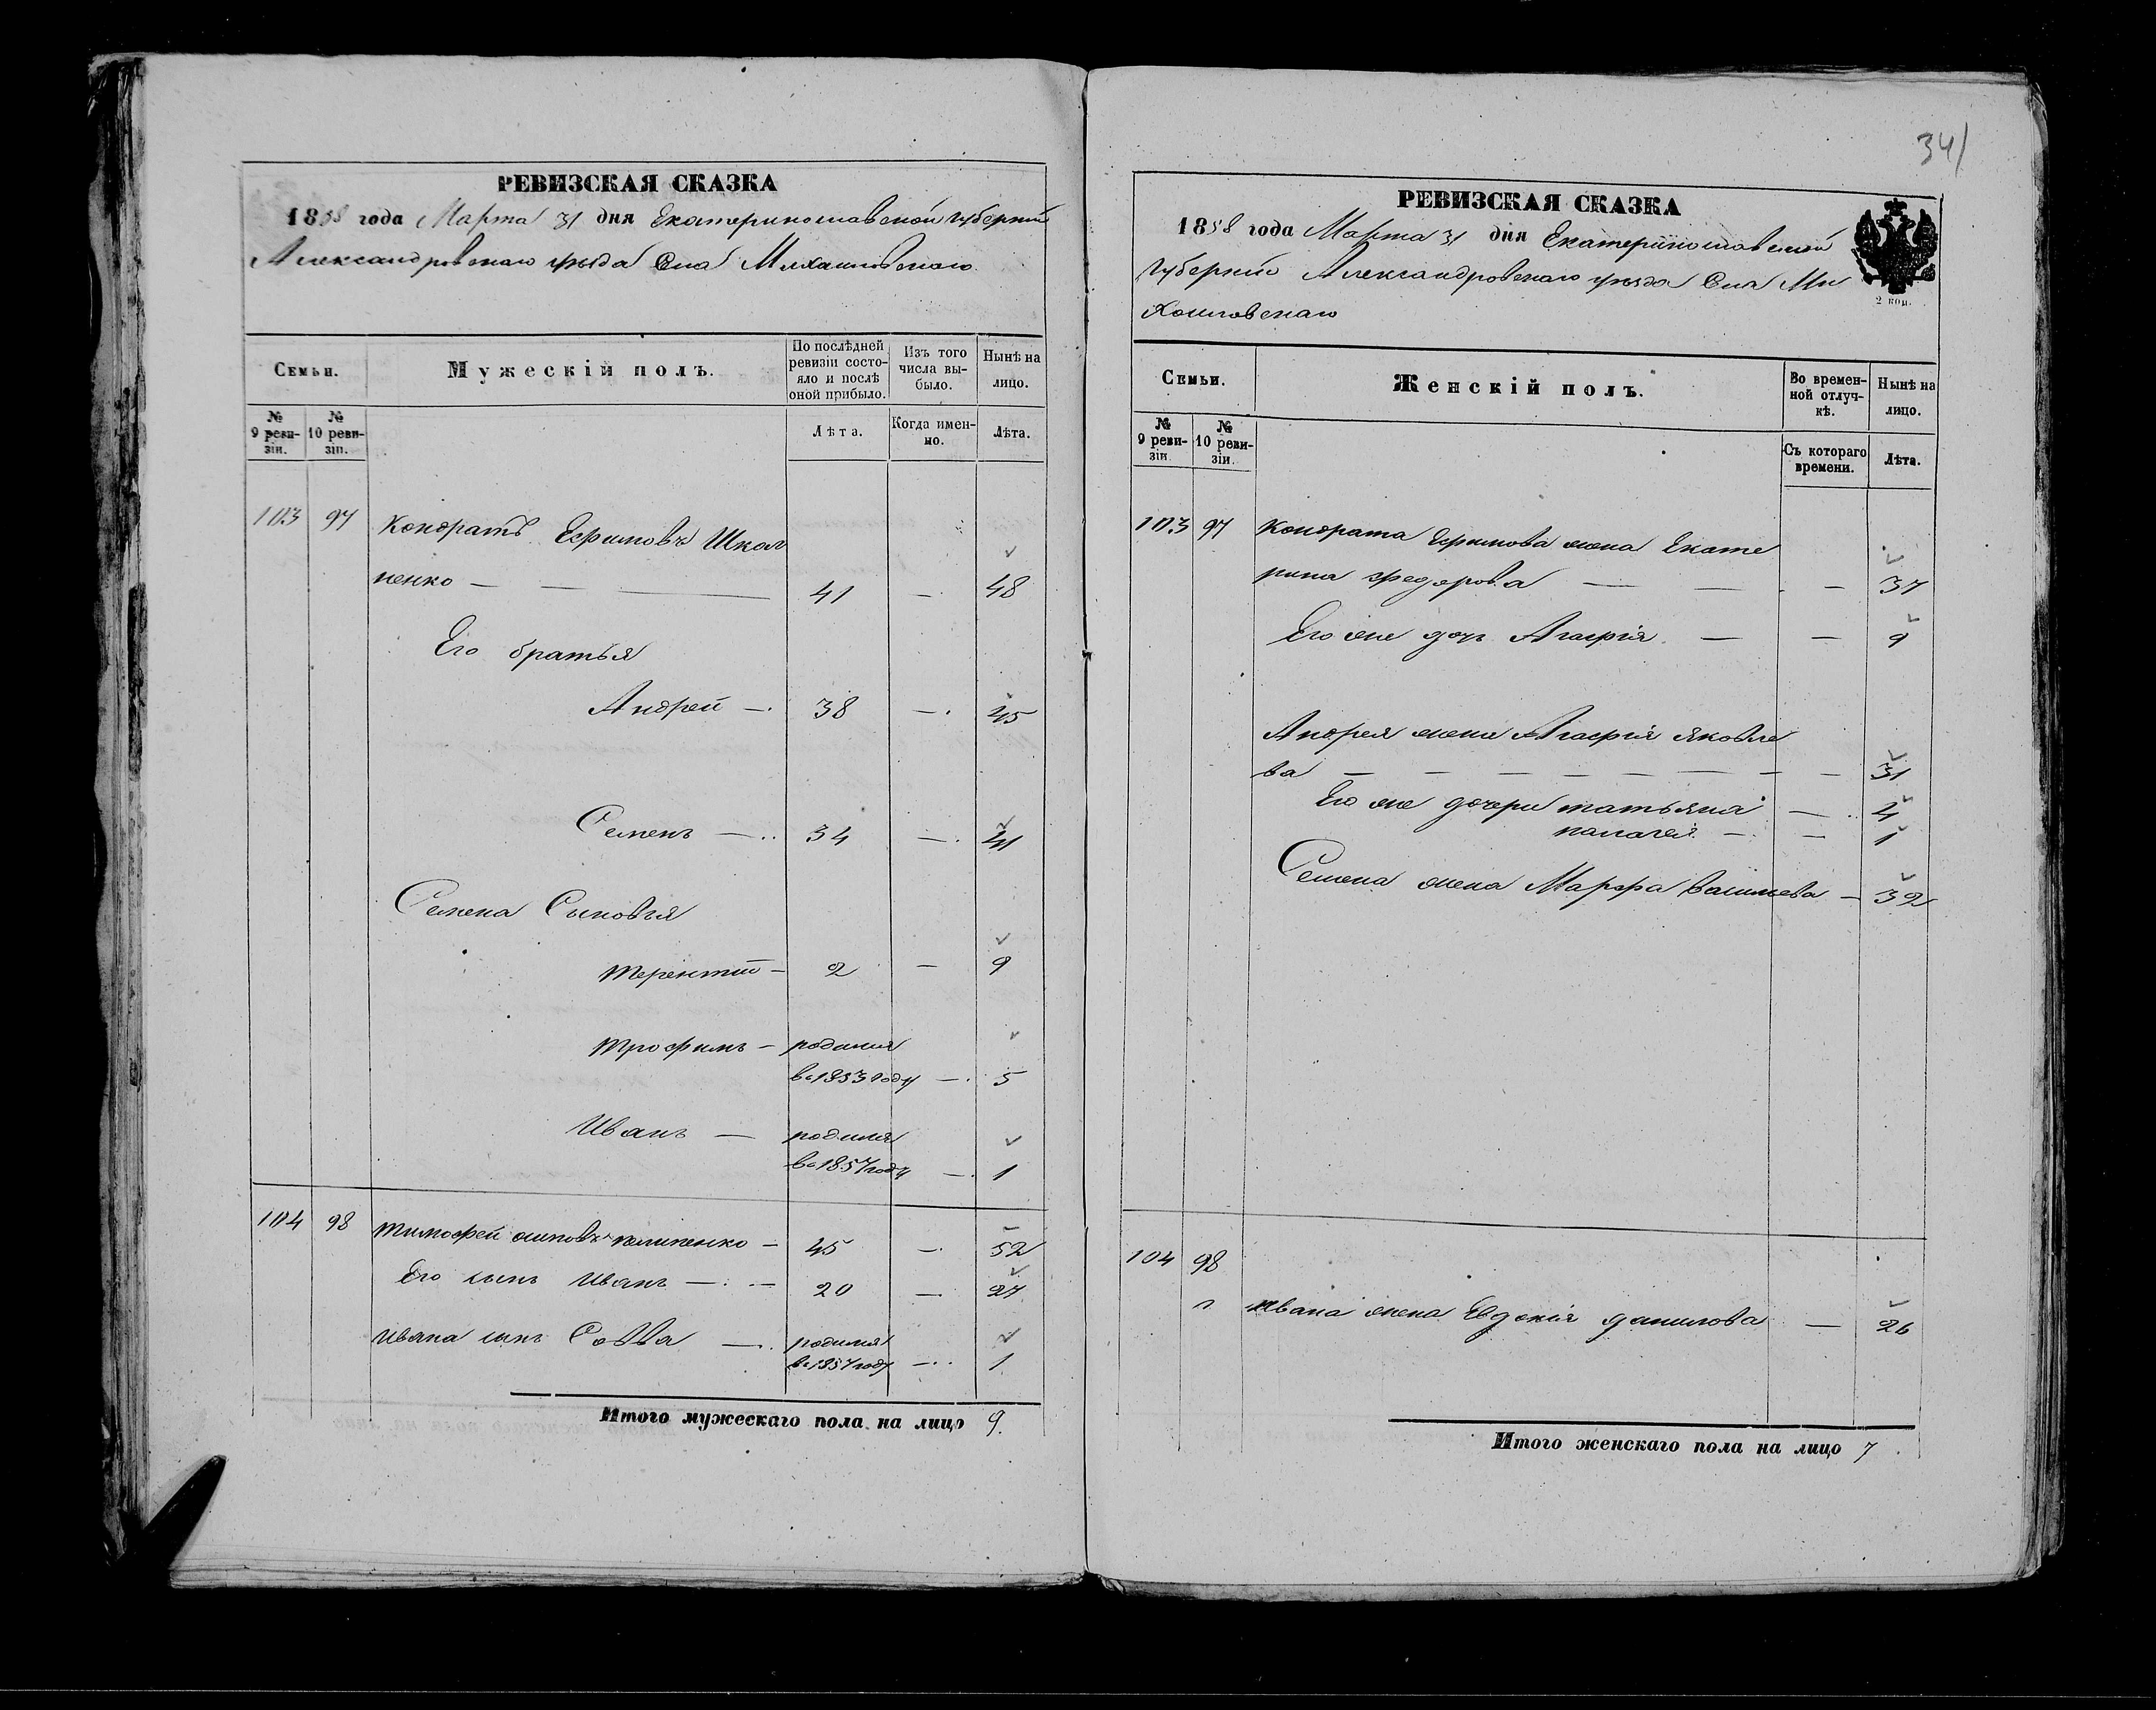 РЕВИЗСКАЯ СКАЗКА
1858 года Марта 31 дня Екатеринославской губерніи
Александровскаго уѣзда Села Михайловскаго
Семьи.
Мужескій полъ.
По послѣдней ревизіи состояло и послѣ оной прибыло.
Изъ того числа выбыло.
Нынѣ на лицо.
№ 9 ревизіи.
№ 10 ревизіи.
Лѣта.
Когда именно.
Лѣта.
103 97 Кондратъ Ефимовъ Школ
ненко — 41 — 48
Его братья
Андрей — 38 — 45
Семенъ — 34 — 41
Семена Сыновья
Терентій — 2 — 9
Трофимъ — родился
въ 1853 году — 5
Иванъ — родился
въ 1857 году — 1
104 98 Тимофей Осиповъ — 45 — 52
Его сынъ Иванъ — 20 — 27
Ивана сынъ Савва — родился
въ 1857 году — 1
Итого мужескаго пола на лицо 9.
341
РЕВИЗСКАЯ СКАЗКА
1858 года Марта 31 дня Екатеринославской
губерніи Александровскаго уѣзда Села Ми
хайловскаго
2 коп.
Семьи.
Женскій полъ.
Во временной отлучкѣ.
Нынѣ на лицо.
№ 9 ревизіи.
№ 10 ревизіи.
Съ котораго времени.
Лѣта.
103 97 Кондрата Ефимова жена Екате
рина Федорова — — 37
Его же дочь Агафія — — 9
Андрея жена Агафія Яковле
ва — — 31
Его же дочери Татьяна — 4
Палагея — — 1
Семена жена Марфа Васильева — 32
104 98
Ивана жена Евдокія Данилова — 26
Итого женскаго пола на лицо 7